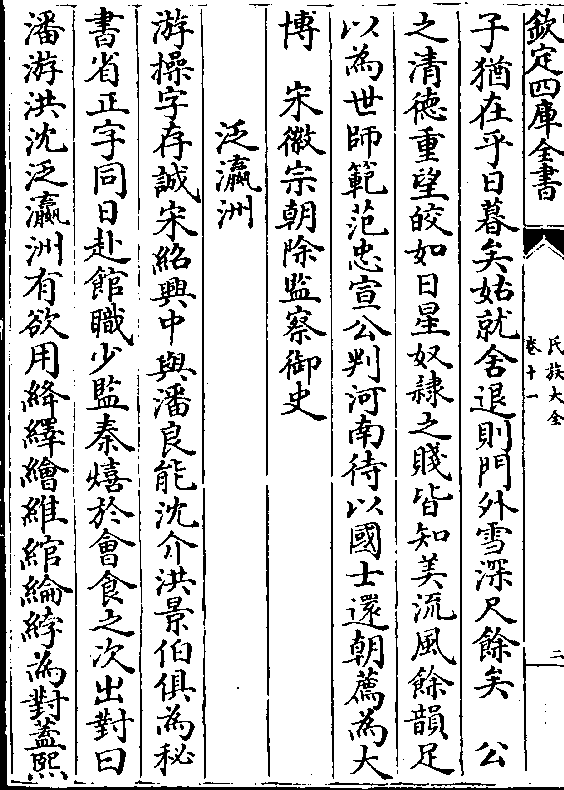 欽定四庫全書
氏族大全
卷十一
二
子猶在乎日暮矣姑就舍退則門外雪深尺餘矣　公
之清德重望皎如日星奴隸之賤皆知美流風餘韻足
以為世師範范忠宣公判河南待以國士還朝薦為大
博　宋徽宗朝除監察御史
泛瀛洲
游操字存誠宋紹興中與潘良能沈介洪景伯俱為秘
書省正字同日赴館職少監秦熺於會食之次出對曰
潘游洪沈泛瀛洲有欲用絳繹繪維綰綸綍為對蓋熙